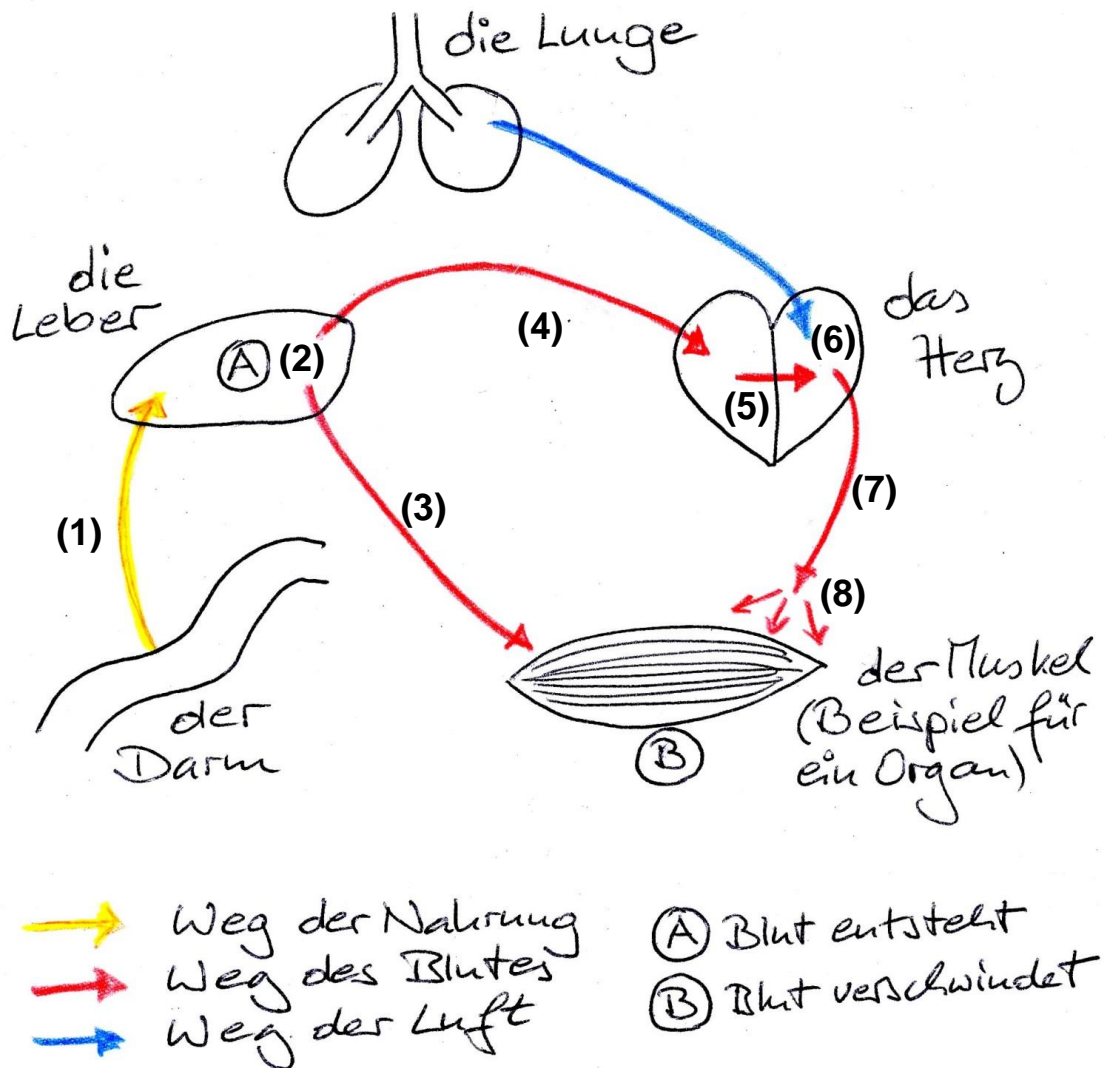 die Lunge
die
Leber
A
(2)
(4)
(6)
(5)
das
Herz
(1)
(3)
(7)
(8)
der
Darm
der Muskel
(Beispiel für
ein Organ)
B
Weg der Nahrung
Weg des Blutes
Weg der Luft
A Blut entsteht
B Blut verschwindet